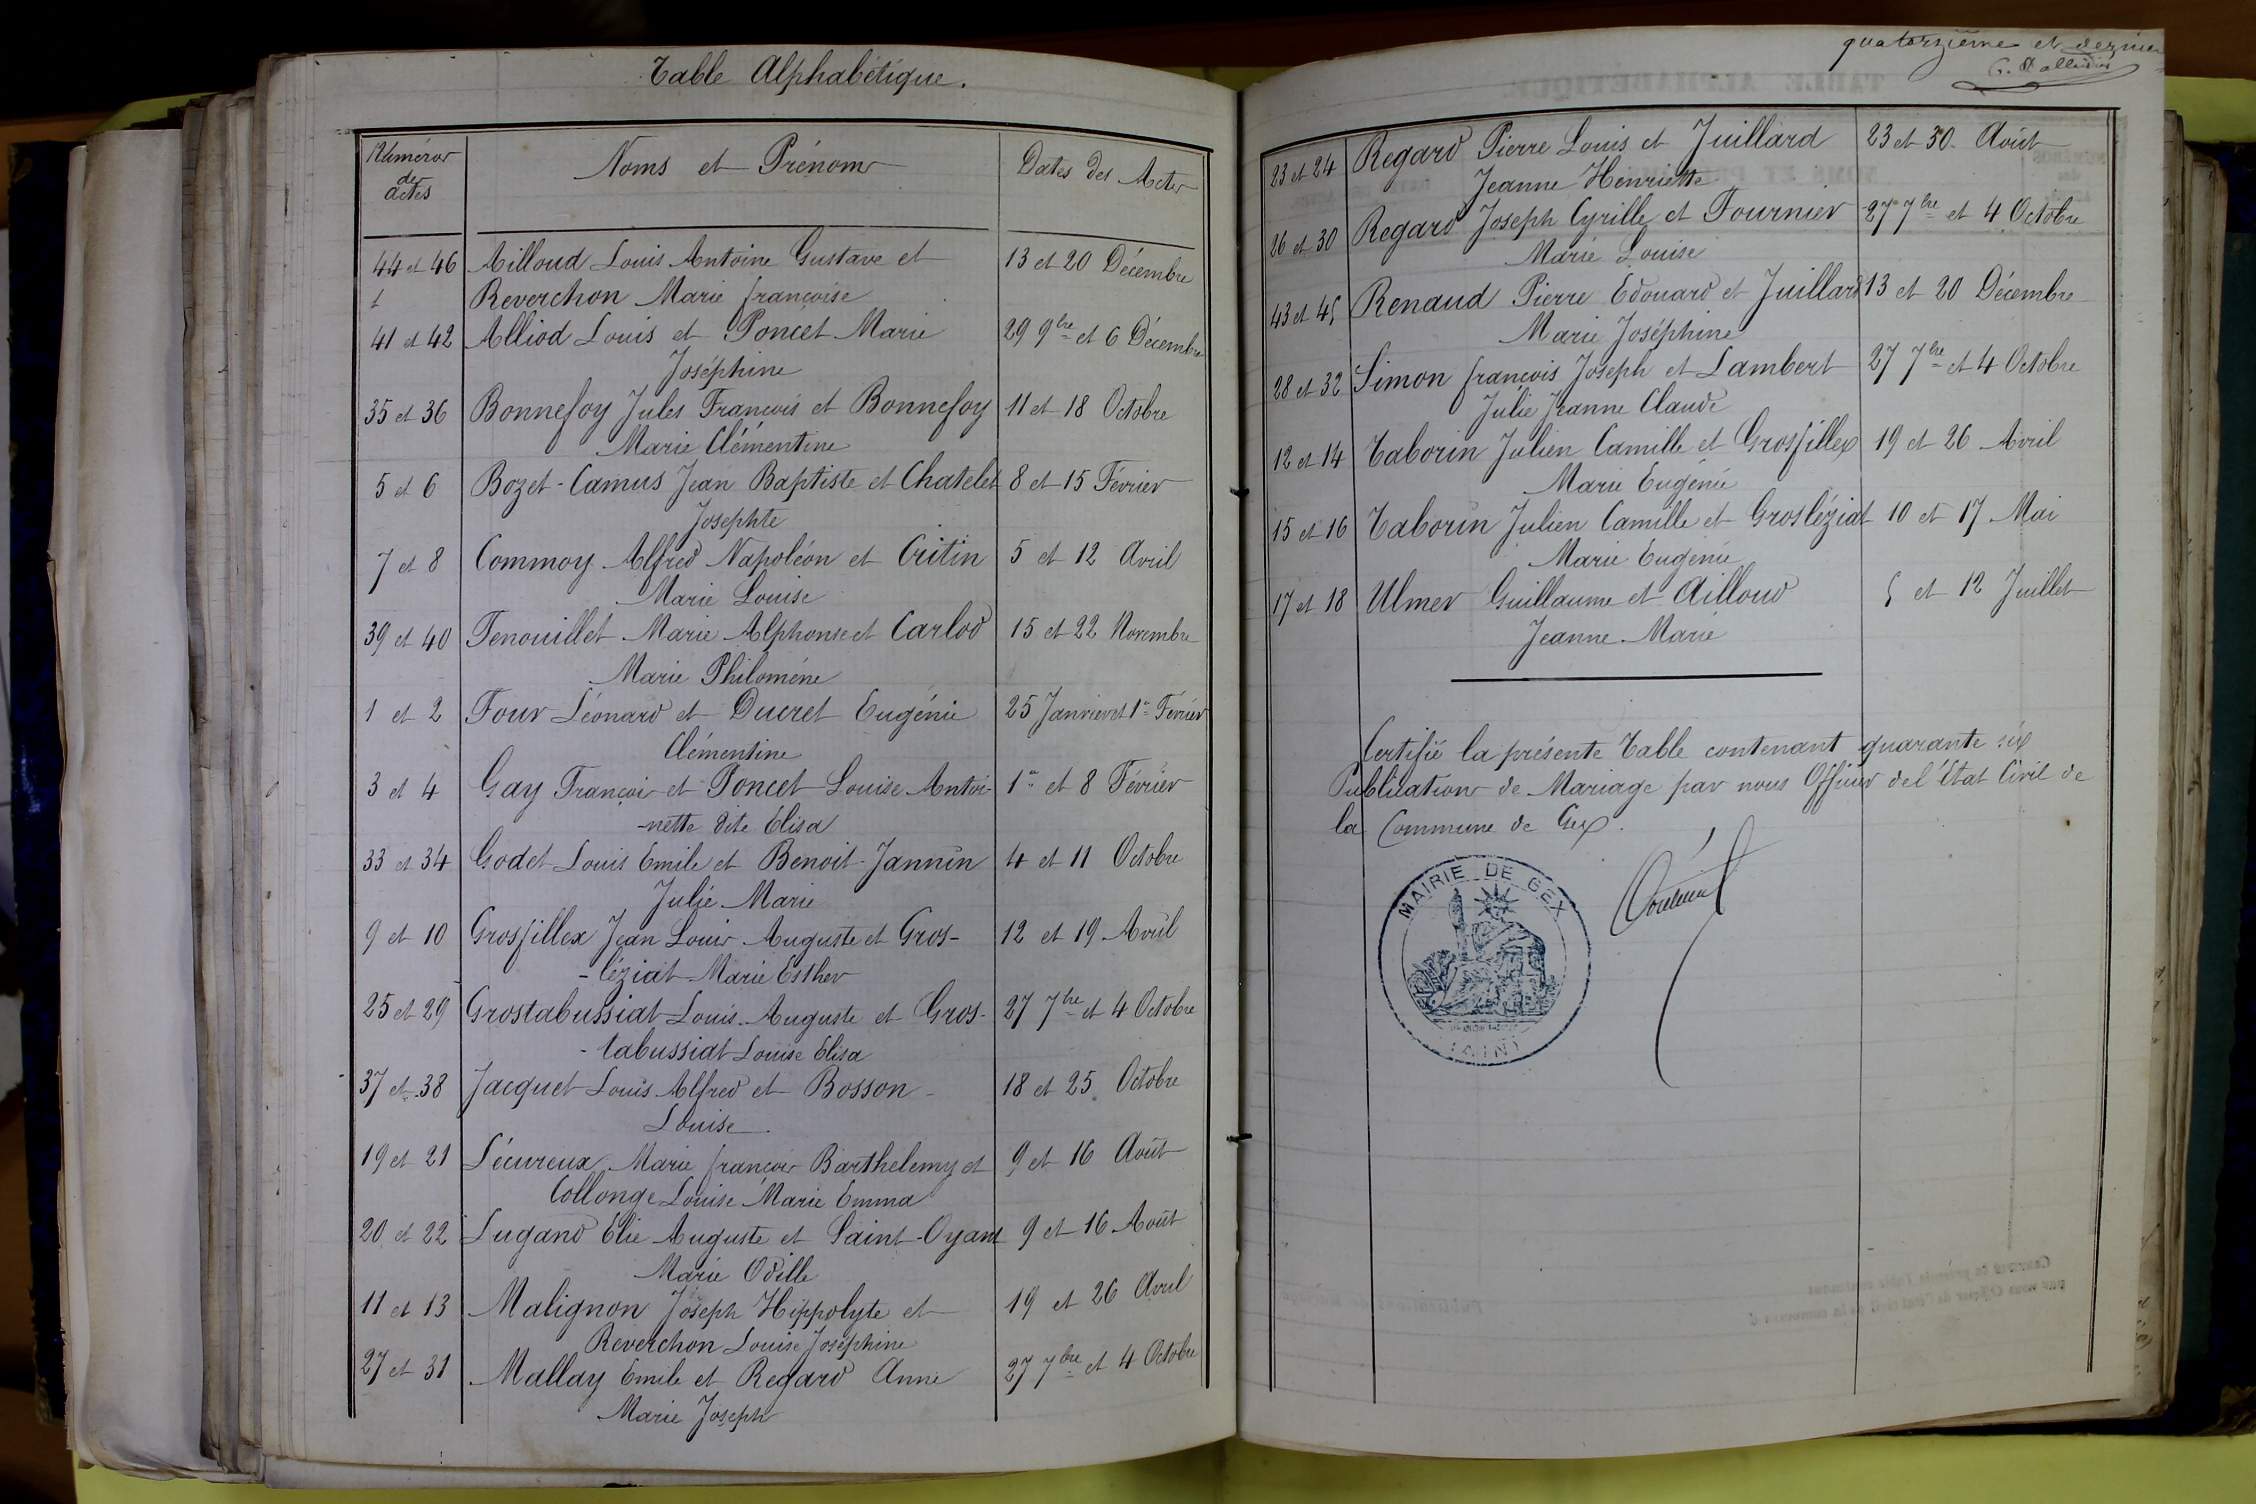 Table Alphabétique.
Numéros des actes
Noms et Prénoms
Dates des Actes
44 et 46 Ailloud Louis Antoine Gustave et 13 et 20 Décembre
Reverchon Marie françoise
41 et 42 Alliod Louis et Poncet Marie 29 9bre et 6 Décembre
Joséphine
35 et 36 Bonnefoy Jules François et Bonnefoy 11 et 18 Octobre
Marie Clémentine
5 et 6 Bozet-Camus Jean Baptiste et Chatelet 8 et 15 Février
Josephte
7 et 8 Commoy Alfred Napoléon et Critin 5 et 12 Avril
Marie Louise
39 et 40 Fenouillet Marie Alphonse et Carlod 15 et 22 Novembre
Marie Philomène
1 et 2 Four Léonard et Ducret Eugénie 25 Janvier et 1er Février
Clémentine
3 et 4 Gay François et Poncet Louise Antoi- 1er et 8 Février
-nette dite Elisa
33 et 34 Godet Louis Emile et Benoit-Jannin 4 et 11 Octobre
Julie Marie
9 et 10 Grosfillex Jean Louis Auguste et Gros- 12 et 19 Avril
-léziat Marie Esther
25 et 29 Grostabussiat Louis Auguste et Gros- 27 7bre et 4 Octobre
-tabussiat Louise Elisa
37 et 38 Jacquet Louis Alfred et Bosson 18 et 25 Octobre
Louise
19 et 21 Lécureux Marie françois Barthelemy et 9 et 16 Août
Collonge Louise Marie Emma
20 et 22 Lugand Elie Auguste et Saint-Oyant 9 et 16 Août
Marie Odille
11 et 13 Malignon Joseph Hippolyte et 19 et 26 Avril
Reverchon Louise Joséphine
27 et 31 Mallay Emile et Regard Anne 27 7bre et 4 Octobre
Marie Joseph
quatorzième et dernier
23 et 24 Regard Pierre Louis et Juillard 23 et 30 Août
Jeanne Henriette
26 et 30 Regard Joseph Cyrille et Fournier 27 7bre et 4 Octobre
Marie Louise
43 et 45 Renaud Pierre Edouard et Juillard 13 et 20 Décembre
Marie Joséphine
28 et 32 Simon françois Joseph et Lambert 27 7bre et 4 Octobre
Julie Jeanne Claude
12 et 14 Taborin Julien Camille et Grosfillex 19 et 26 Avril
Marie Eugénie
15 et 16 Taborin Julien Camille et Grosléziat 10 et 17 Mai
Marie Eugénie
17 et 18 Ulmer Guillaume et Ailloud 5 et 12 Juillet
Jeanne Marie
Certifié la présente Table contenant quarante six
Publications de Mariage par nous Officier de l'Etat Civil de
la Commune de Gex.
MAIRIE DE GEX
(AIN)